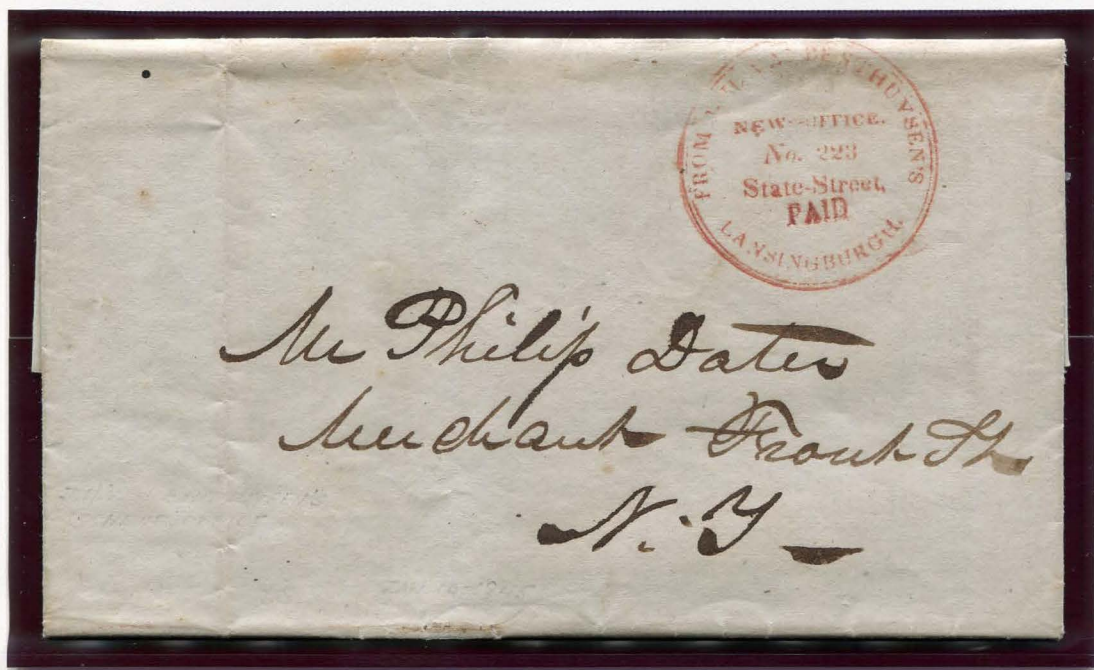 FROM VAN BENTHUYSEN'S
NEWS-OFFICE.
No. 223
State-Street,
PAID
LANSINGBURGH.
Mr Philip Dater
Merchant Front St
N. Y